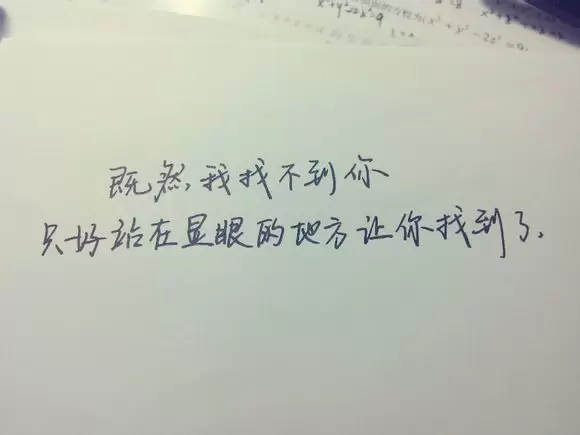 x²+y²-2z²=0.
既然,我找不到你
只好站在显眼的地方让你找到了.